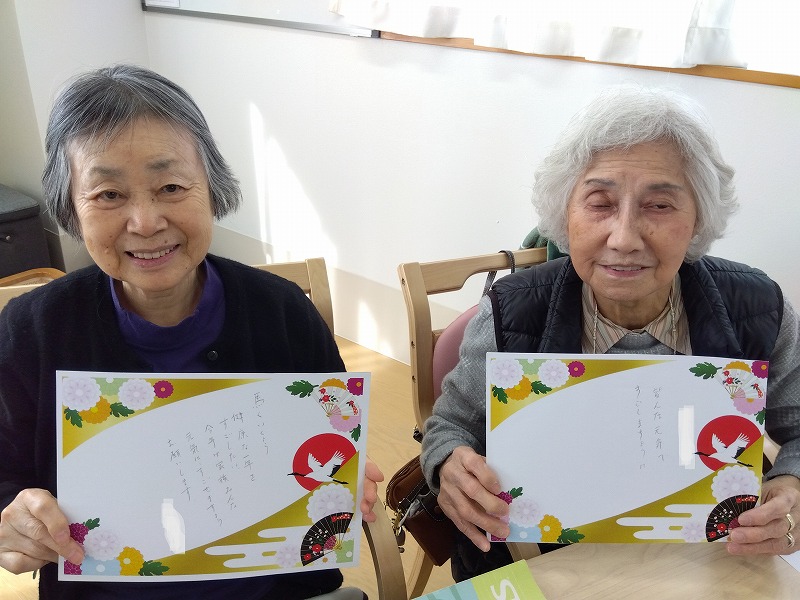 馬しいとう
健康な一年を
すごしたい
今年は家族みんな
元気にすごせますよう
お願いします
皆んな元気で
すごしますように
S